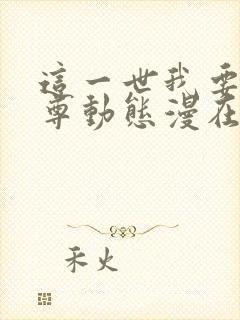 這一世我要
尊動態漫在
禾火